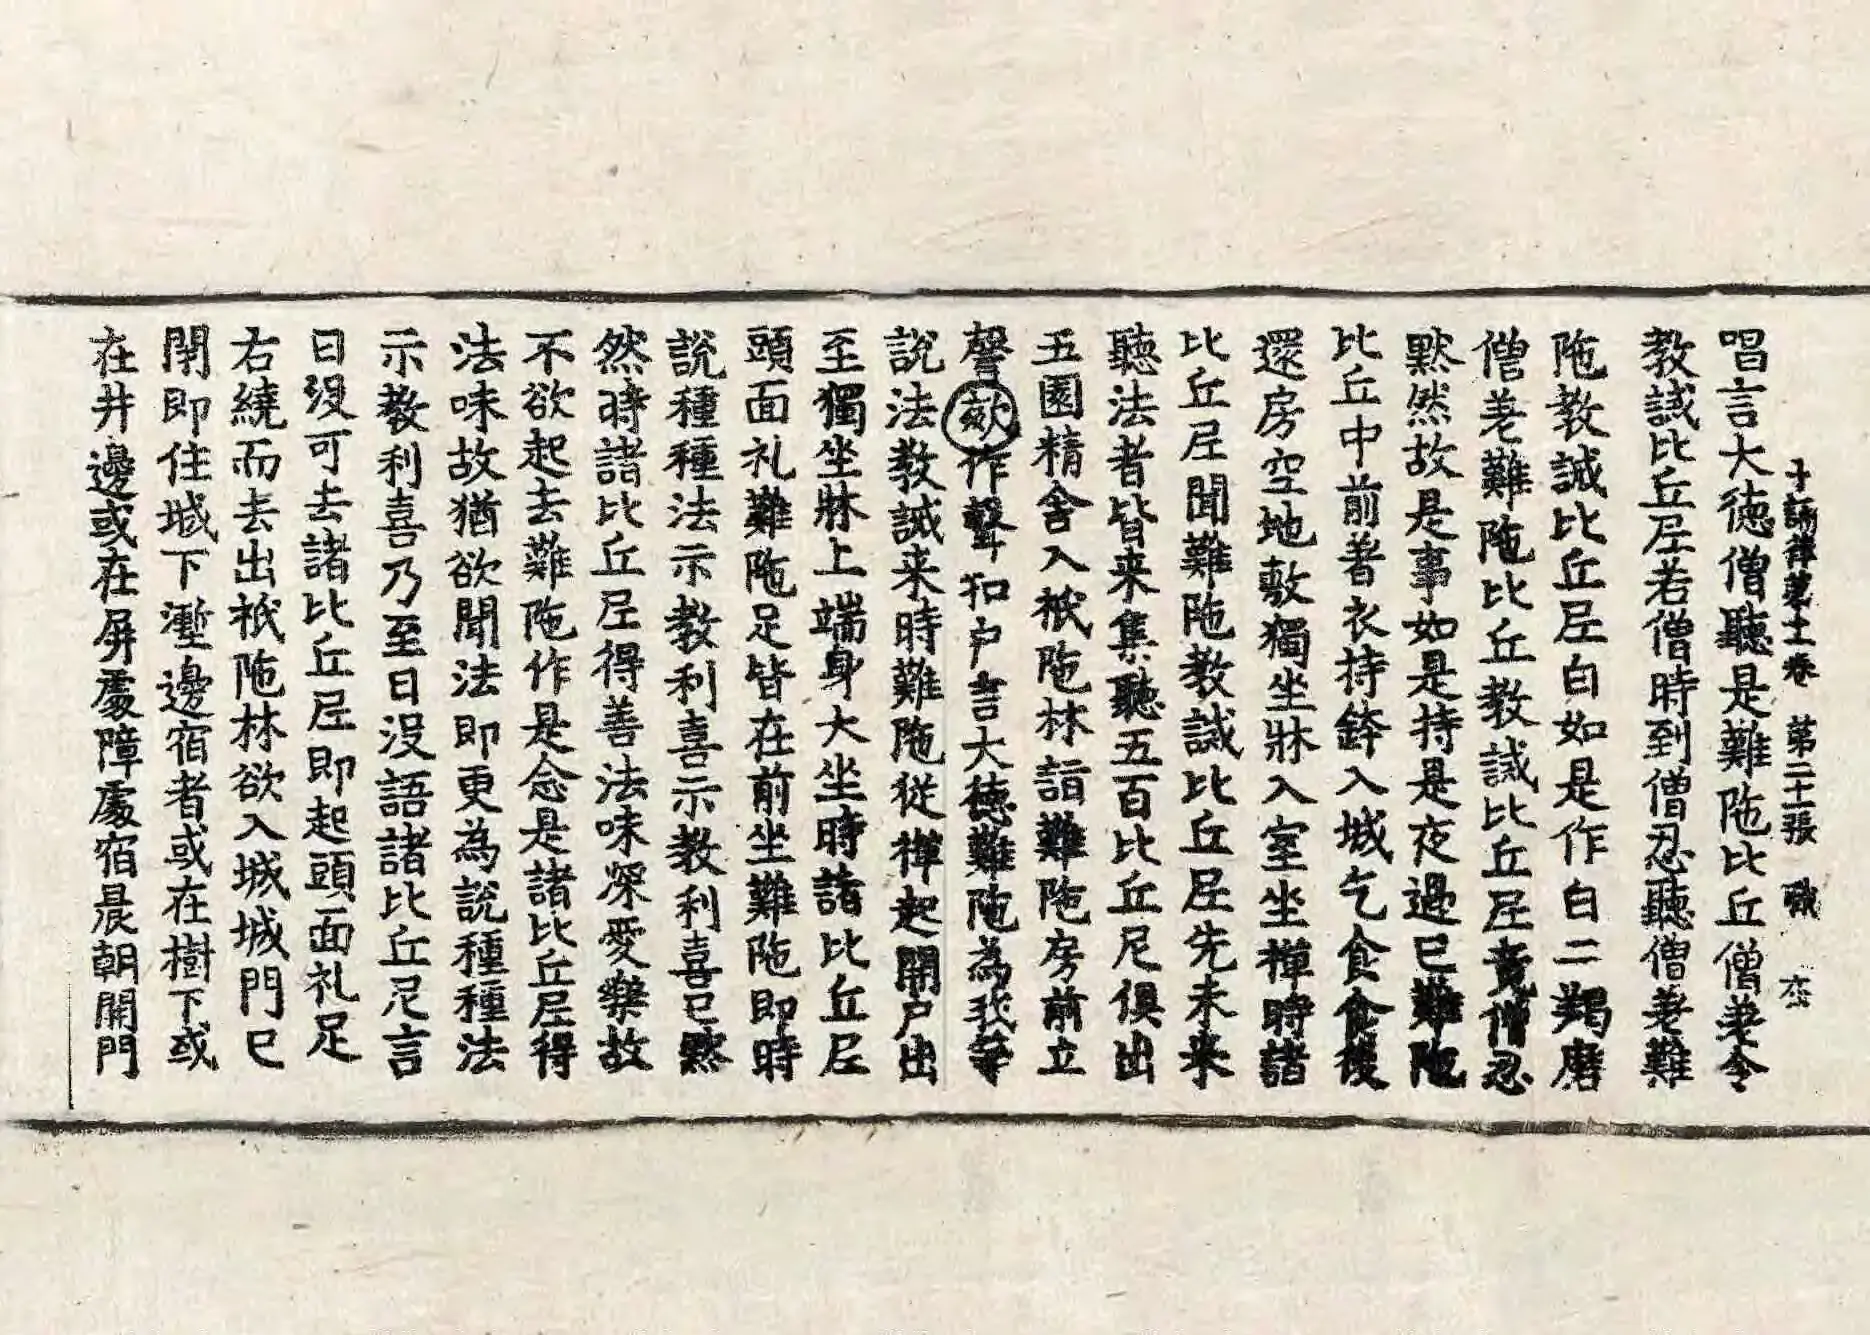 十誦律第十一卷 第二十一張
唱言大徳僧聽是難陁比丘僧差令
教誡比丘尼若僧時到僧忍聽僧差難
陁教誡比丘尼白如是作白二羯磨
僧差難陁比丘教誡比丘尼竟僧忍
黙然故是事如是持是夜過已難陁
比丘中前著衣持鉢入城乞食食後
還房空地敷獨坐牀入室坐禪時諸
比丘尼聞難陁教誡比丘尼先未来
聽法者皆来集聽五百比丘尼俱出
王園精舍入祇陁林詣難陁房前立
謦欬作聲扣户言大徳難陁為我等
說法教誡来時難陁從禪起開户出
至獨坐牀上端身大坐時諸比丘尼
頭面礼難陁足皆在前坐難陁即時
說種種法示教利喜示教利喜已黙
然時諸比丘尼得善法味深愛樂故
不欲起去難陁作是念是諸比丘尼得
法味故猶欲聞法即更為說種種法
示教利喜乃至日没語諸比丘尼言
日没可去諸比丘尼即起頭面礼足
右繞而去出祇陁林欲入城城門已
閇即住城下壍邊宿者或在樹下或
在井邊或在屏處障處宿晨朝開門